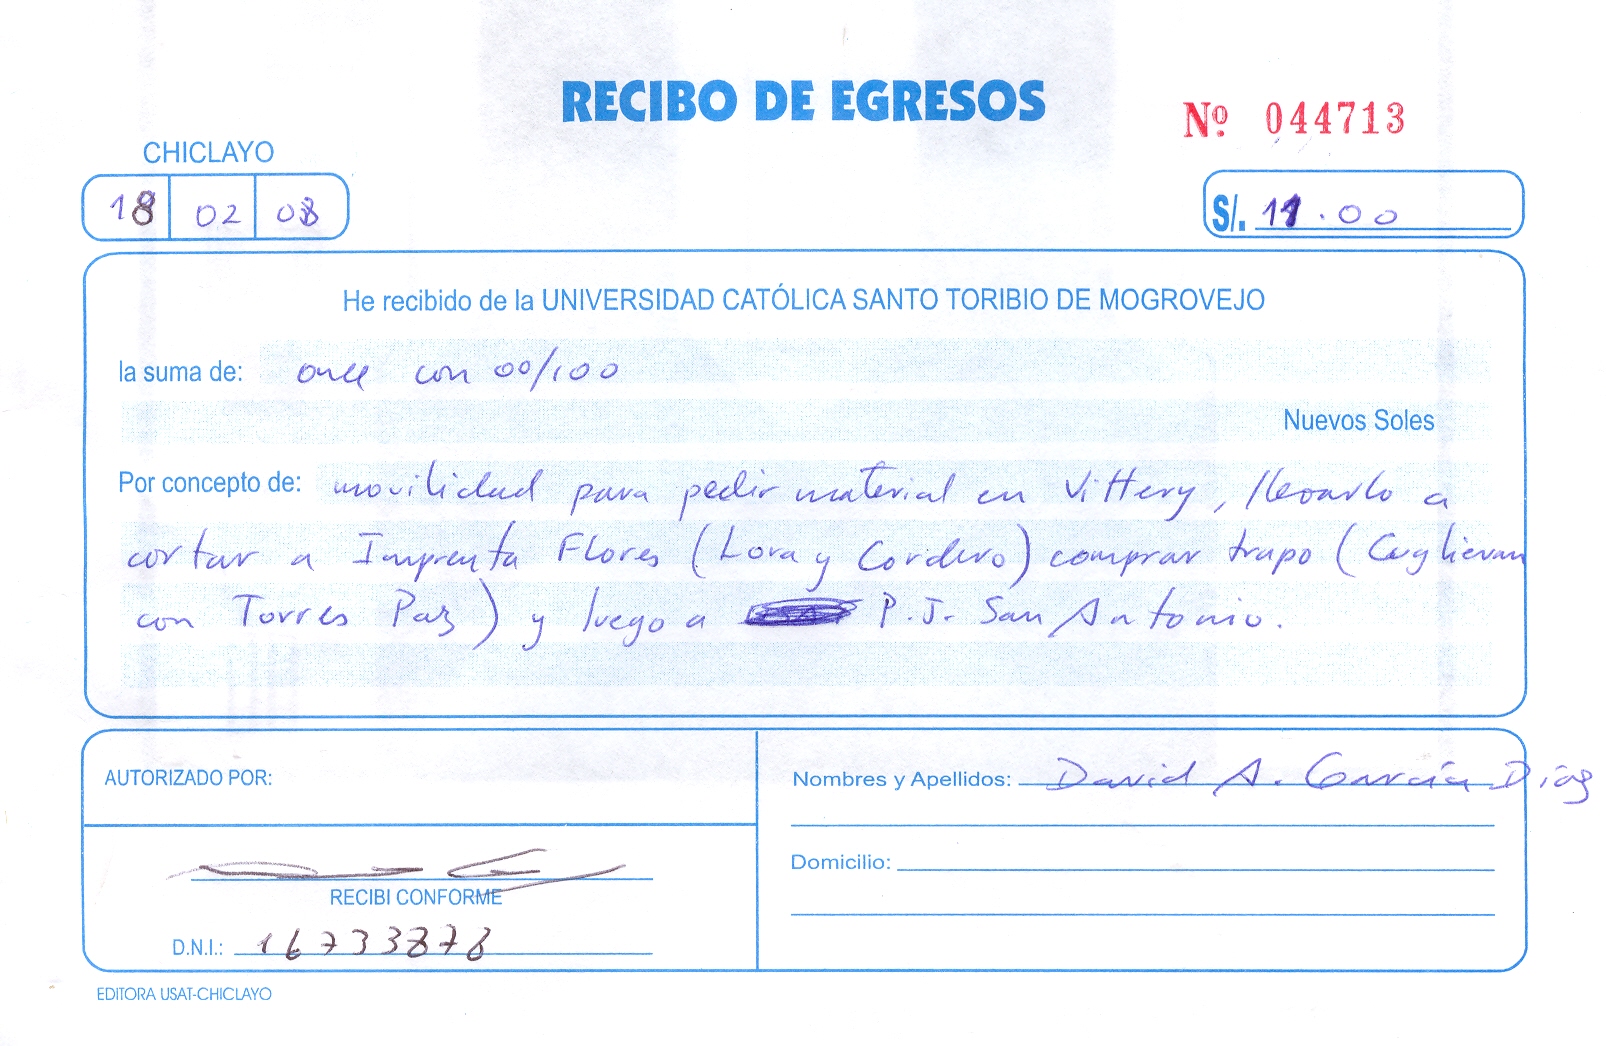 RECIBO DE EGRESOS
Nº 044713
CHICLAYO
18 02 08
S/. 11.00
He recibido de la UNIVERSIDAD CATÓLICA SANTO TORIBIO DE MOGROVEJO
la suma de: once con 00/100
Nuevos Soles
Por concepto de: movilidad para pedir material en Vittery, llevarlo a
cortar a Imprenta Flores (Lora y Cordero) comprar trapo (Cuglievan
con Torres Paz) y luego a P.J. San Antonio.
AUTORIZADO POR:
Nombres y Apellidos: David A. García Díaz
Domicilio:
RECIBI CONFORME
D.N.I.: 16733878
EDITORA USAT-CHICLAYO